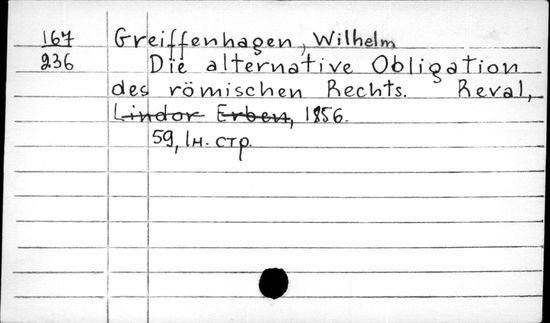 167 Greiffenhagen, Wilhelm
236 Die alternative Obligation
des römischen Rechts. Reval,
Lindor Erben, 1856.
59, 1н. стр.